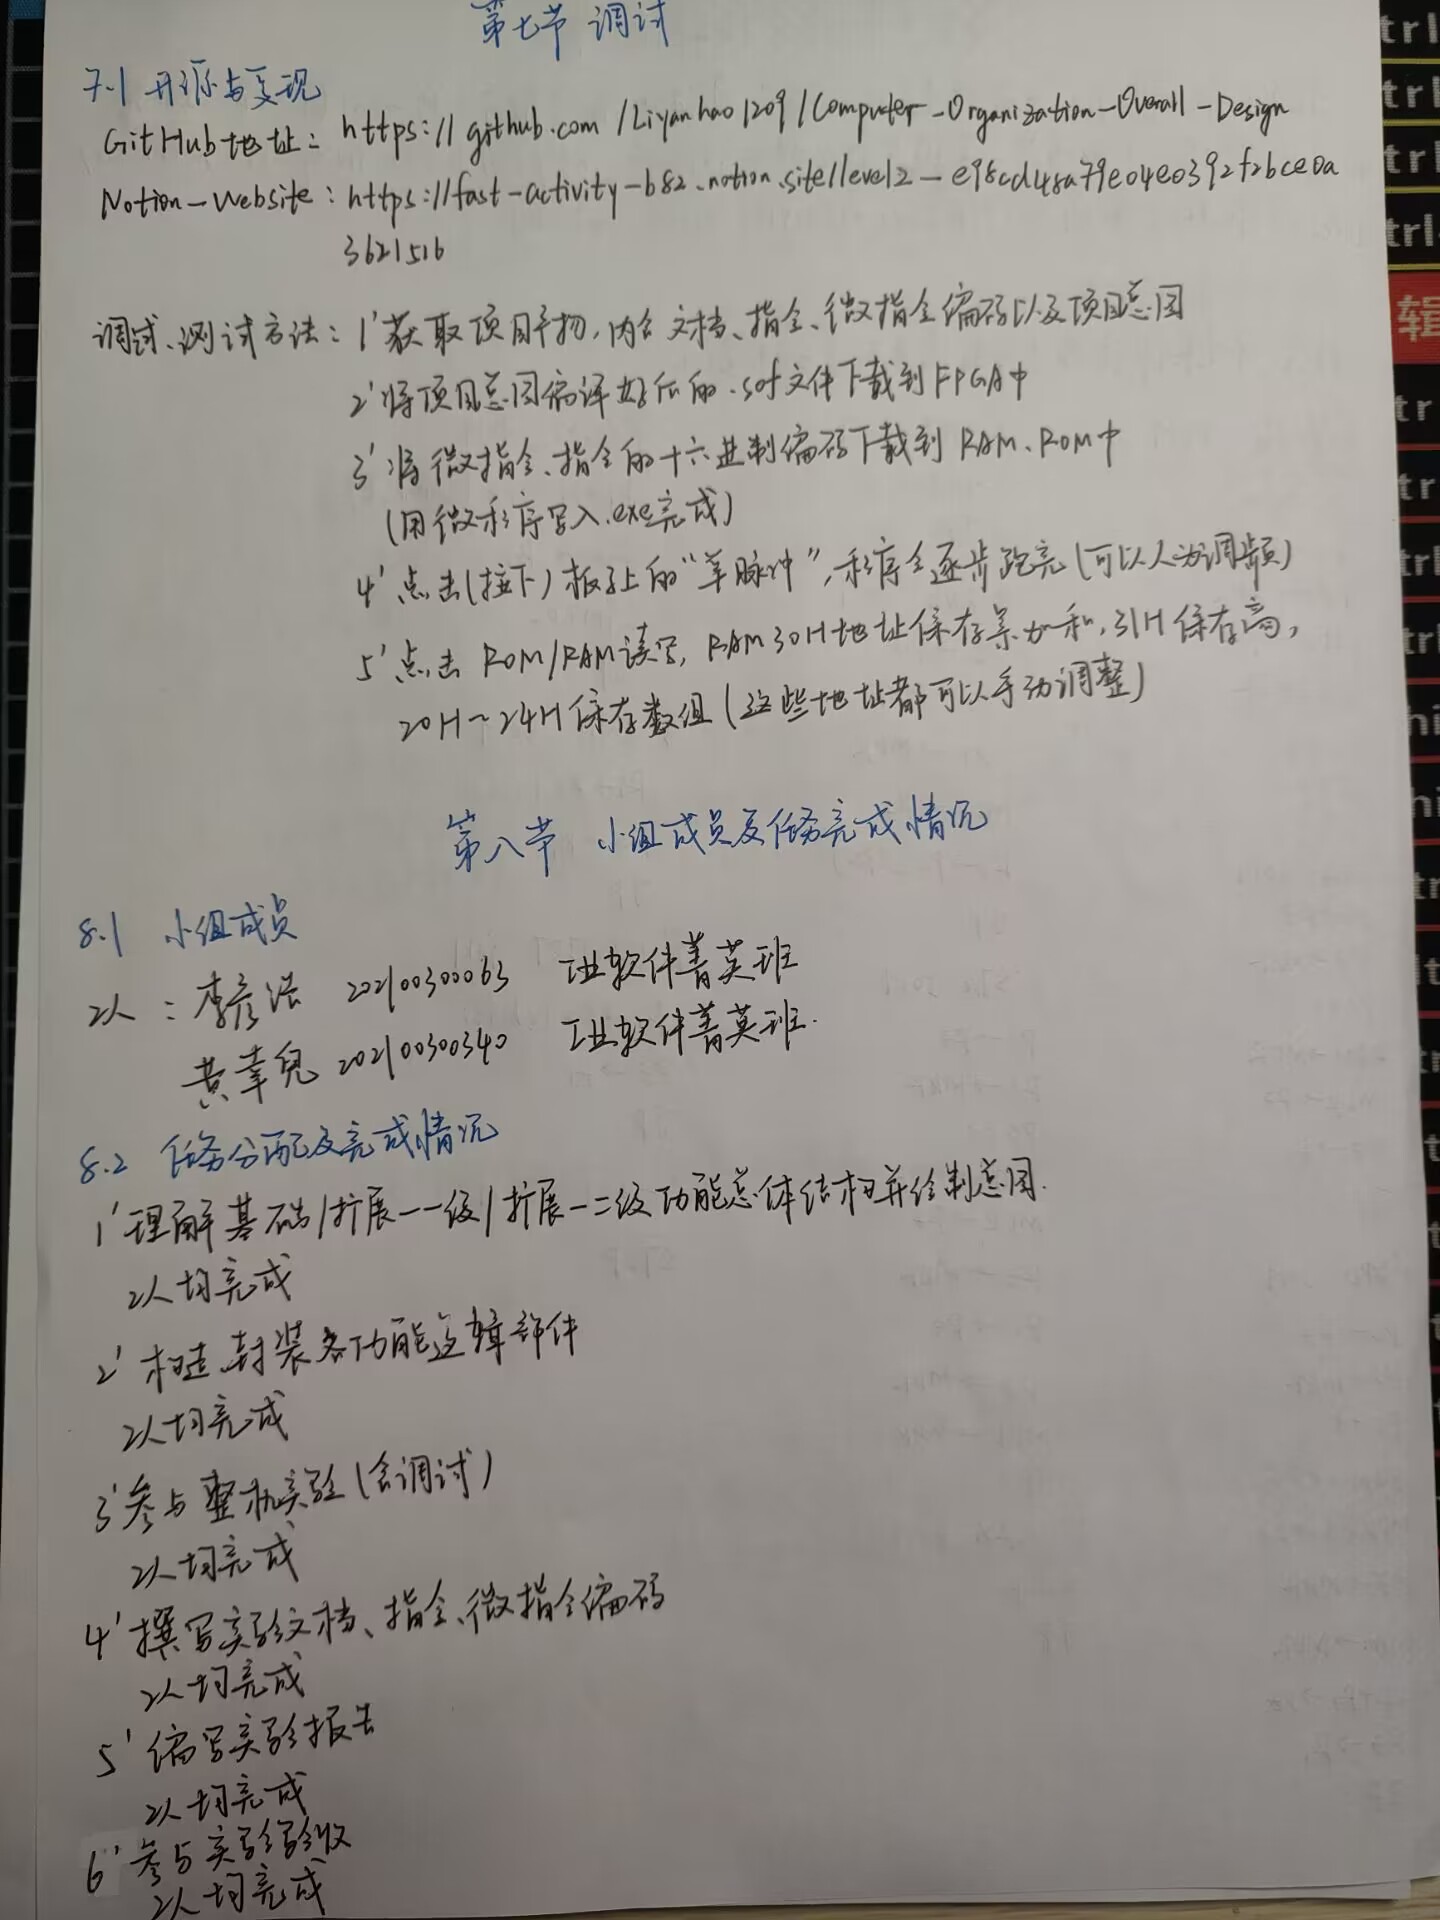 第七节 调试
7.1 开源与复现
GitHub地址: https://github.com/Liyanhao1209/Computer-Organization-Overall-Design
Notion-Website: https://fast-activity-b82.notion.site/level2-e98cd48a79e04e0392f2bce0a
3621516
调试、测试方法: 1' 获取项目产物,内含文档、指令、微指令编码以及项目总图
2' 将项目总图编译好后的.sof文件下载到FPGA中
3' 将微指令、指令的十六进制编码下载到RAM、ROM中
(用微程序写入.exe完成)
4' 点击(按下)板子上的“单脉冲”,程序会逐步跑完(可以人为调频)
5' 点击ROM/RAM读写, RAM30H地址保存累加和,31H保存高,
20H~24H保存数组(这些地址都可以手动调整)
第八节 小组成员及任务完成情况
8.1 小组成员
2人: 李彦浩 202100300063 工业软件菁英班
黄幸兒 202100300340 工业软件菁英班.
8.2 任务分配及完成情况
1' 理解基础/扩展-一级/扩展-二级功能总体结构并绘制总图.
2人均完成
2' 构造、封装各功能逻辑部件
2人均完成
3' 参与整机实验(含调试)
2人均完成
4' 撰写实验文档、指令、微指令编码
2人均完成
5' 编写实验报告
2人均完成
6' 参与实验验收
2人均完成
trl
trl
trl
trl
辑
tr
tr